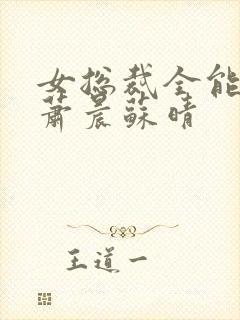 女总裁全能
萧晨苏晴
王道一